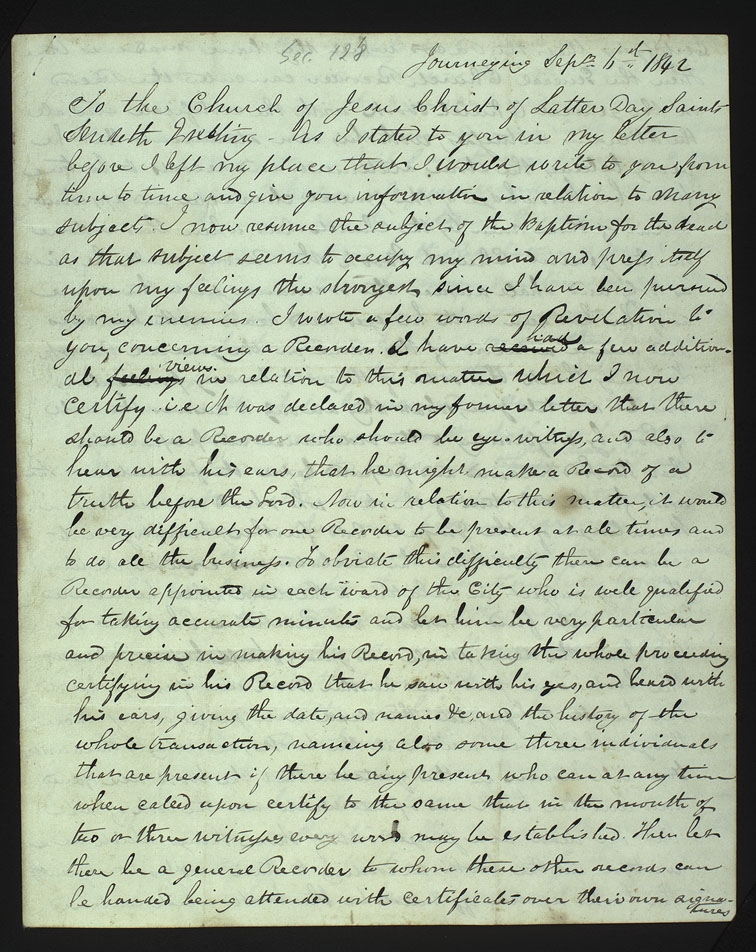 Sec. 128
Journeying Sept. 6st 1842
To the Church of Jesus Christ of Latter Day Saints
Sendeth Greeting - As I stated to you in my letter
before I left my place that I would write to you from
time to time and give you information in relation to many
subjects. I now resume the subject of the baptism for the dead
as that subject seems to occupy my mind and press itself
upon my feelings the strongest, since I have been pursued
by my enemies. I wrote a few words of Revelation to
you, concerning a Recorder. I have received had a few addition-
al feelings views in relation to this matter which I now
certify. i.e It was declared in my former letter that there
should be a Recorder who should be eye-witness, and also to
hear with his ears, that he might make a Record of a
truth before the Lord. Now in relation to this matter, it would
be very difficult for one Recorder to be present at all times and
to do all the business. To obviate this difficulty there can be a
Recorder appointed in each ward of the City who is well qualified
for taking accurate minutes and let him be very particular
and precise in making his Record, in taking the whole proceeding
certifying in his Record that he saw with his eyes, and heard with
his ears, giving the date, and names &c, and the history of the
whole transaction, nameing also some three individuals
that are present if there be any present who can at any time
when called upon certify to the same that in the mouth of
two or three witnesses every word may be established. Then let
there be a general Recorder to whom these other records can
be handed being attended with certificates over their own signa-
tures